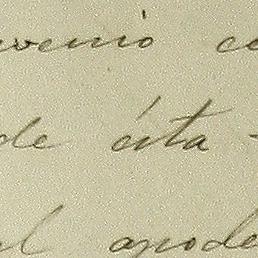 venio ce
de ésta -
al apode